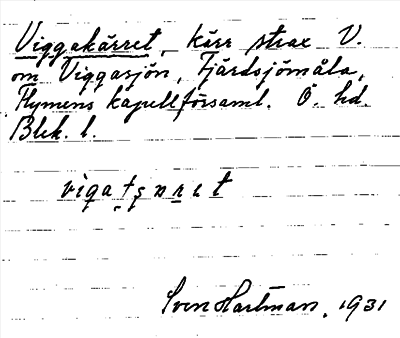 Viggakärret, kärr strax V.
om Viggasjön, Fjärdsjömåla,
Flymens kapellförsaml. Ö. hd.
Blek. l.
Sven Hartman, 1931